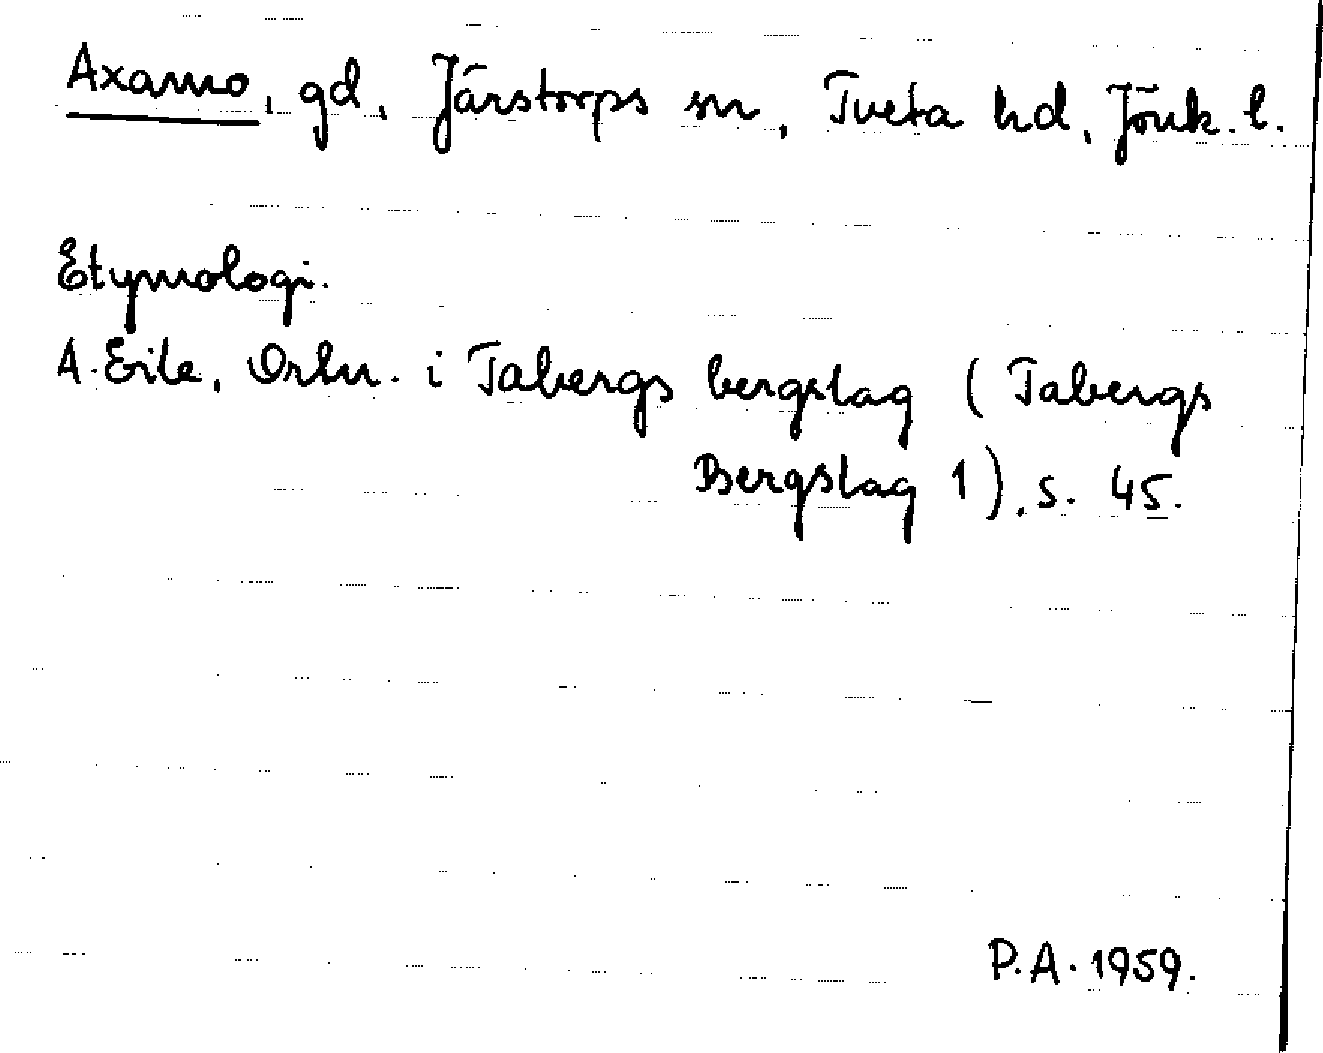 Axamo, gd, Järstorps sn, Tveta hd, Jönk. l.
Etymologi.
A. Eile, Ortn. i Tabergs bergslag (Tabergs
Bergslag 1), s. 45.
P.A. 1959.